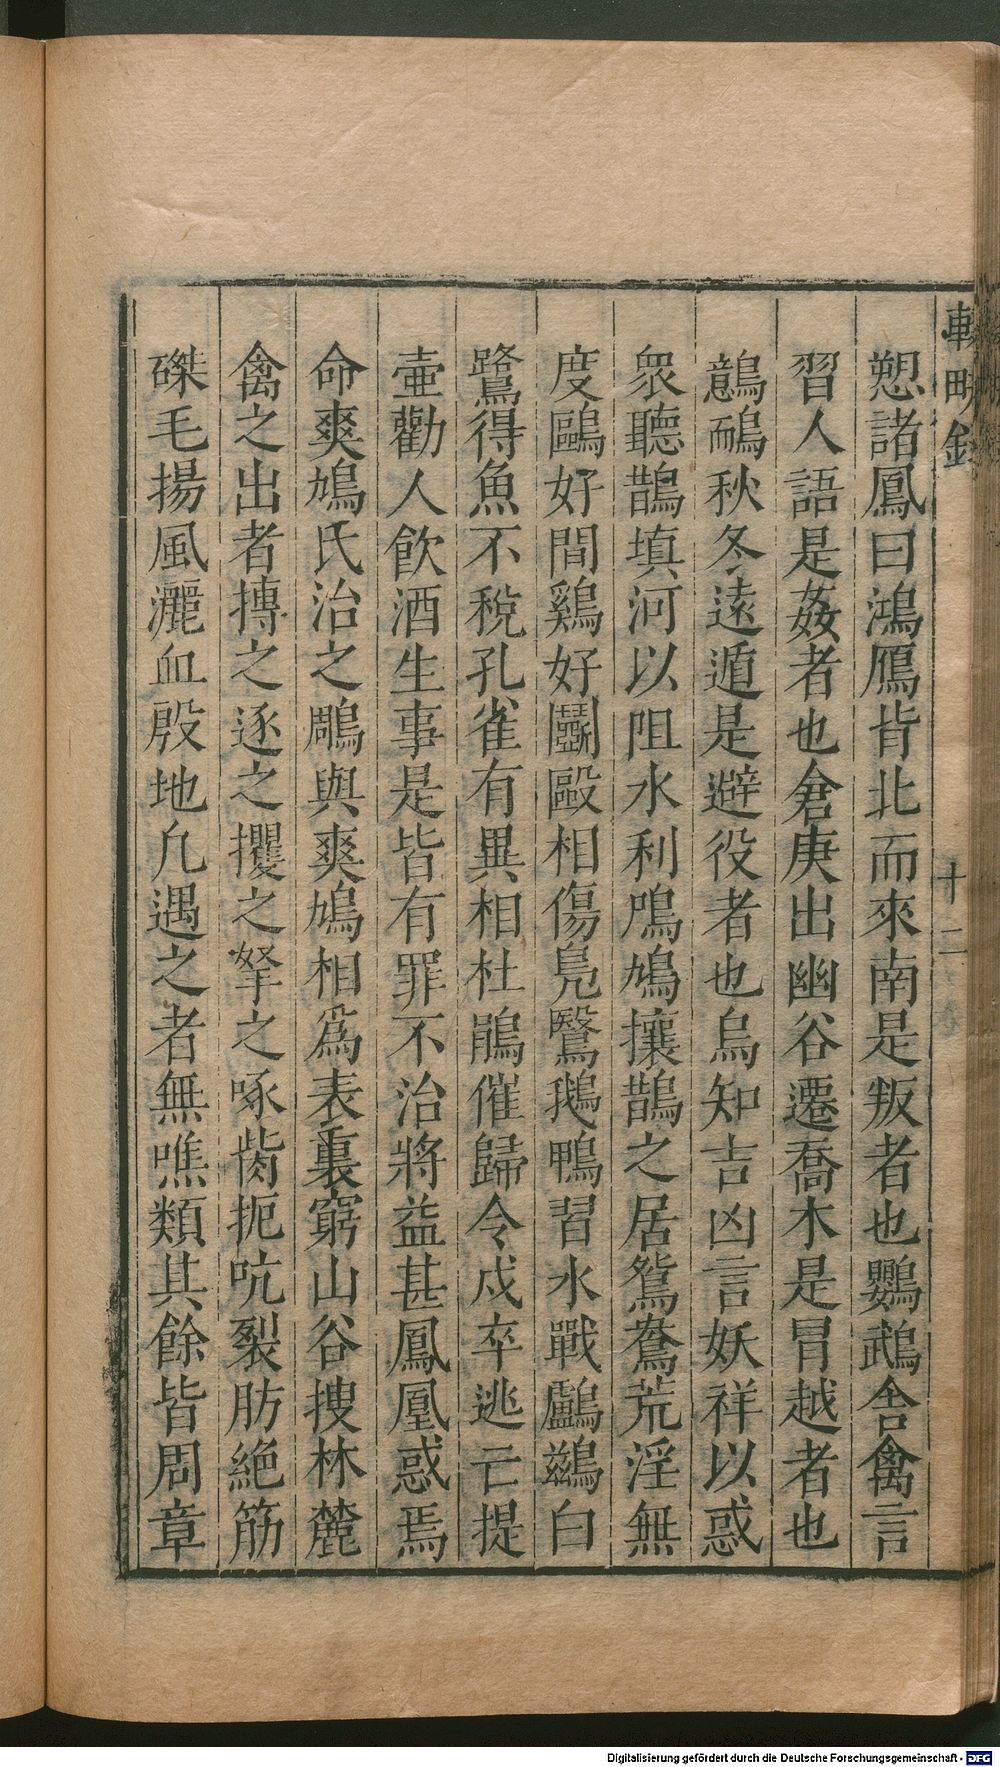 十二
愬諸鳳曰鴻鴈背北而來南是叛者也鸚鵡舍禽言
習人語是姦者也倉庚出幽谷遷喬木是冒越者也
鷾鴯秋冬遠遁是避役者也烏知吉凶言妖祥以惑
衆聽鵲填河以阻水利鳲鳩攘鵲之居鴛鴦荒淫無
度鷗好間鷄好鬭毆相傷鳧鷖鵝鴨習水戰鸕鷀白
鷺得魚不稅孔雀有異相杜鵑催歸令戍卒逃亡提
壷勸人飲酒生事是皆有罪不治將益甚鳳凰惑焉
命爽鳩氏治之鵰與爽鳩相爲表裏窮山谷搜林麓
禽之出者摶之逐之攫之拏之啄胔扼吭裂肪絶筋
磔毛揚風灑血殷地凡遇之者無噍類其餘皆周章
Digitalisierung gefördert durch die Deutsche Forschungsgemeinschaft - DFG